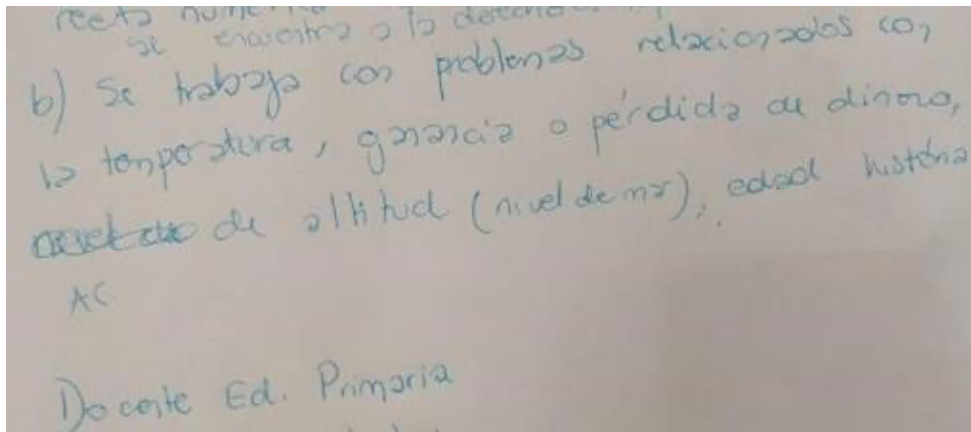 recta
se encuentra a la derecha
b) Se trabaja con problemas relacionados con
la temperatura, ganancia o pérdida de dinero,
de altitud (nivel de mar), edad história
AC.
Docente Ed. Primaria